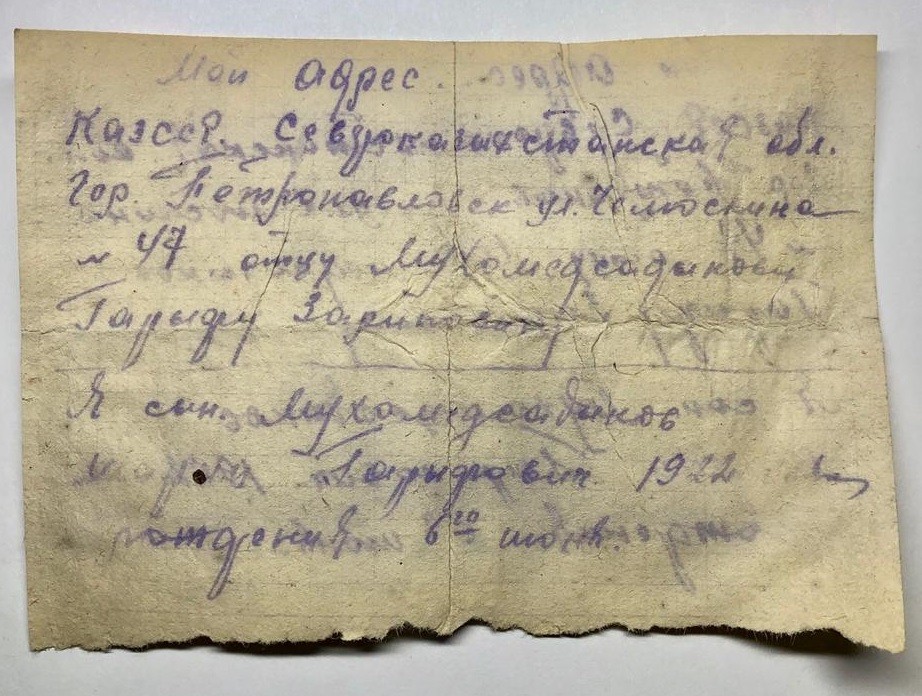 Мой адрес.
КазССР. Североказахстанская обл.
Гор. Петропавловск ул. Челюскина
№ 47 отцу Мухомедсадыкову
Гарыфу Зарипович
Я сын. Мухомедсадыков
Гарыфович 1922
рождения 6го июня.